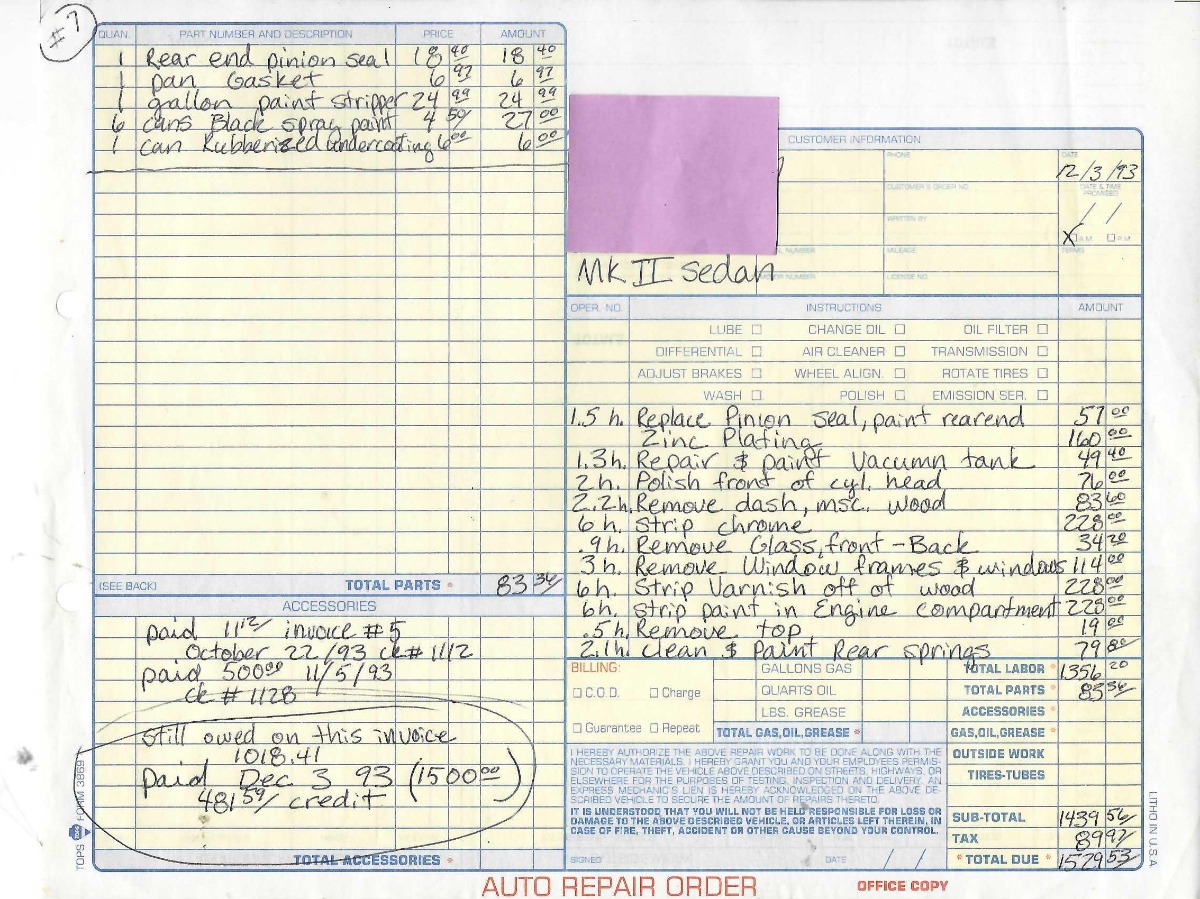 #7
QUAN. PART NUMBER AND DESCRIPTION PRICE AMOUNT
1 Rear end pinion seal 18 40 18 40
1 pan Gasket 6 97 6 97
1 gallon paint stripper 24 99 24 99
6 cans Black spray paint 4 50/ 27 00
1 can Rubberized undercoating 6 00 6 00
(SEE BACK) TOTAL PARTS 83 36
ACCESSORIES
paid 11 12/ invoice #5
October 22/93 ck# 1112
paid 500 00 11/5/93
ck # 1128
still owed on this invoice
1018.41
Paid Dec 3 93 (1500 00)
481 59/ credit
TOTAL ACCESSORIES
TOPS FORM 3869
CUSTOMER INFORMATION
PHONE
DATE
12/3/93
CUSTOMER'S ORDER NO.
DATE & TIME PROMISED
/ /
WRITTEN BY
X A.M. P.M.
NUMBER MILEAGE TERMS
MK II sedan
NUMBER LICENSE NO.
OPER. NO. INSTRUCTIONS AMOUNT
LUBE CHANGE OIL OIL FILTER
DIFFERENTIAL AIR CLEANER TRANSMISSION
ADJUST BRAKES WHEEL ALIGN. ROTATE TIRES
WASH POLISH EMISSION SER.
1.5 h. Replace Pinion seal, paint rearend 57 00
Zinc Plating 160 00
1.3h. Repair & paint Vacumn tank 49 40
2h. Polish front of cyl. head 76 00
2.2h. Remove dash, msc. wood 83 60
6 h. Strip chrome 228 00
.9h. Remove Glass, front - Back 34 20
3h. Remove Window frames & windows 114 00
6h. Strip Varnish off of wood 228 00
6h. Strip paint in Engine compartment 228 00
.5h. Remove top 19 00
2.1h. Clean & Paint Rear springs 79 80
BILLING: GALLONS GAS TOTAL LABOR 1356 20
C.O.D. Charge QUARTS OIL TOTAL PARTS 83 36
LBS. GREASE ACCESSORIES
Guarantee Repeat TOTAL GAS, OIL, GREASE GAS, OIL, GREASE
I HEREBY AUTHORIZE THE ABOVE REPAIR WORK TO BE DONE ALONG WITH THE
NECESSARY MATERIALS. I HEREBY GRANT YOU AND YOUR EMPLOYEES PERMIS-
SION TO OPERATE THE VEHICLE ABOVE DESCRIBED ON STREETS, HIGHWAYS, OR
ELSEWHERE FOR THE PURPOSES OF TESTING, INSPECTION AND DELIVERY. AN
EXPRESS MECHANIC'S LIEN IS HEREBY ACKNOWLEDGED ON THE ABOVE DE-
SCRIBED VEHICLE TO SECURE THE AMOUNT OF REPAIRS THERETO.
IT IS UNDERSTOOD THAT YOU WILL NOT BE HELD RESPONSIBLE FOR LOSS OR
DAMAGE TO THE ABOVE DESCRIBED VEHICLE, OR ARTICLES LEFT THEREIN, IN
CASE OF FIRE, THEFT, ACCIDENT OR OTHER CAUSE BEYOND YOUR CONTROL.
SIGNED DATE / /
OUTSIDE WORK
TIRES-TUBES
SUB-TOTAL 1439 56/
TAX 89 97/
TOTAL DUE 1529 53/
LITHO IN U.S.A.
AUTO REPAIR ORDER OFFICE COPY